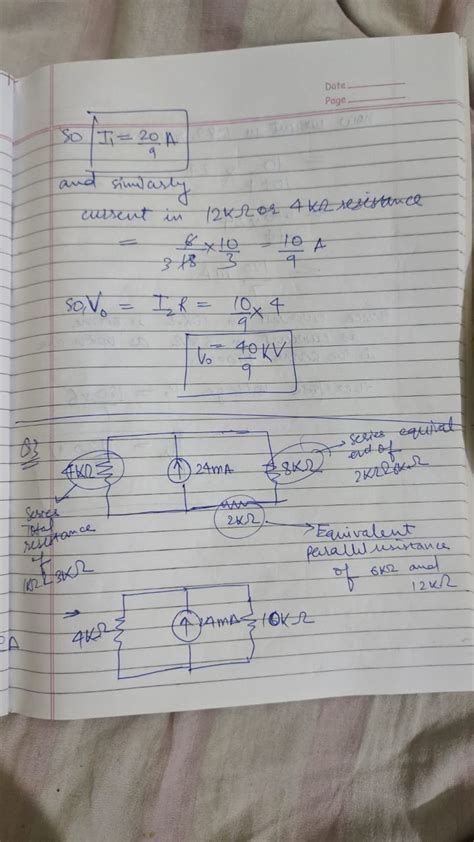 Date
Page
So I₁ = 20/9 A
and similarly
current in 12KΩ or 4KΩ resistance
= 6/18 × 10/3 = 10/9 A
3
so, V₀ = I₂R = 10/9 × 4
V₀ = 40/9 KV
Q3
4KΩ
24mA
8KΩ
series equival
end of
2KΩ 6KΩ
Series
Total
resistance
of
1KΩ 3KΩ
2KΩ
Equivalent
parallel resistance
of 6KΩ and
12KΩ
4KΩ
24mA
10KΩ